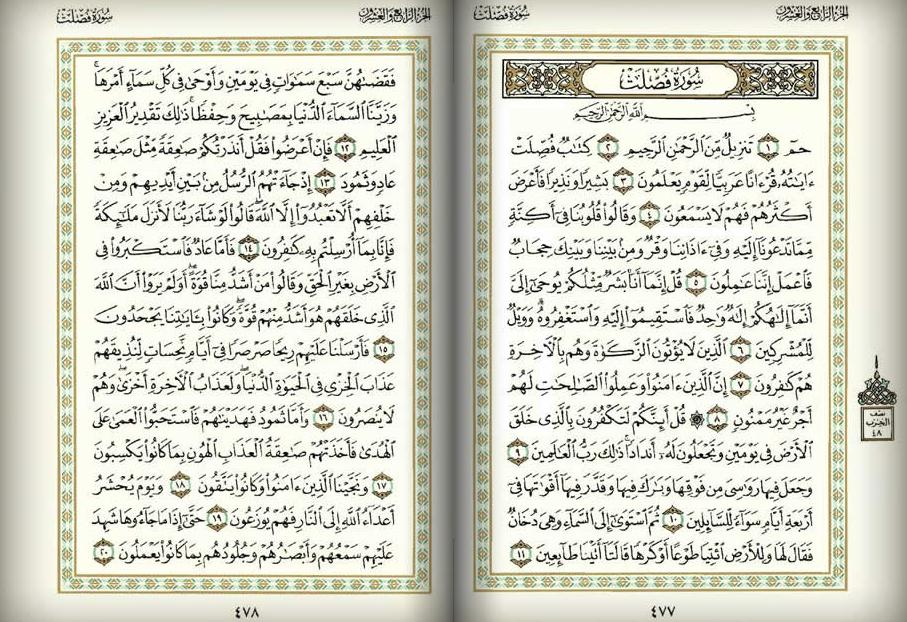 الجزء الرابع والعشرون
سورة فصلت
سُورَةُ فُصِّلَتْ
بِسْمِ اللَّهِ الرَّحْمَٰنِ الرَّحِيمِ
حمٓ ١ تَنزِيلٌ مِّنَ الرَّحْمَٰنِ الرَّحِيمِ ٢ كِتَابٌ فُصِّلَتْ
ءَايَاتُهُ قُرْءَانًا عَرَبِيًّا لِّقَوْمٍ يَعْلَمُونَ ٣ بَشِيرًا وَنَذِيرًا فَأَعْرَضَ
أَكْثَرُهُمْ فَهُمْ لَا يَسْمَعُونَ ٤ وَقَالُوا قُلُوبُنَا فِي أَكِنَّةٍ
مِّمَّا تَدْعُونَا إِلَيْهِ وَفِي ءَاذَانِنَا وَقْرٌ وَمِن بَيْنِنَا وَبَيْنِكَ حِجَابٌ
فَاعْمَلْ إِنَّنَا عَامِلُونَ ٥ قُلْ إِنَّمَا أَنَا بَشَرٌ مِّثْلُكُمْ يُوحَىٰ إِلَيَّ
أَنَّمَا إِلَٰهُكُمْ إِلَٰهٌ وَاحِدٌ فَاسْتَقِيمُوا إِلَيْهِ وَاسْتَغْفِرُوهُ وَوَيْلٌ
لِّلْمُشْرِكِينَ ٦ الَّذِينَ لَا يُؤْتُونَ الزَّكَوٰةَ وَهُم بِالْءَاخِرَةِ
هُمْ كَافِرُونَ ٧ إِنَّ الَّذِينَ ءَامَنُوا وَعَمِلُوا الصَّالِحَاتِ لَهُمْ
أَجْرٌ غَيْرُ مَمْنُونٍ ٨ ۞ قُلْ أَئِنَّكُمْ لَتَكْفُرُونَ بِالَّذِي خَلَقَ
الْأَرْضَ فِي يَوْمَيْنِ وَتَجْعَلُونَ لَهُ أَندَادًا ذَٰلِكَ رَبُّ الْعَالَمِينَ ٩
وَجَعَلَ فِيهَا رَوَاسِيَ مِن فَوْقِهَا وَبَارَكَ فِيهَا وَقَدَّرَ فِيهَا أَقْوَاتَهَا فِي
أَرْبَعَةِ أَيَّامٍ سَوَاءً لِّلسَّائِلِينَ ١٠ ثُمَّ اسْتَوَىٰ إِلَى السَّمَاءِ وَهِيَ دُخَانٌ
فَقَالَ لَهَا وَلِلْأَرْضِ ائْتِيَا طَوْعًا أَوْ كَرْهًا قَالَتَا أَتَيْنَا طَائِعِينَ ١١
نصف
الحزب
٤٨
٤٧٧
الجزء الرابع والعشرون
سورة فصلت
فَقَضَاهُنَّ سَبْعَ سَمَاوَاتٍ فِي يَوْمَيْنِ وَأَوْحَىٰ فِي كُلِّ سَمَاءٍ أَمْرَهَا
وَزَيَّنَّا السَّمَاءَ الدُّنْيَا بِمَصَابِيحَ وَحِفْظًا ذَٰلِكَ تَقْدِيرُ الْعَزِيزِ
الْعَلِيمِ ١٢ فَإِنْ أَعْرَضُوا فَقُلْ أَنذَرْتُكُمْ صَاعِقَةً مِّثْلَ صَاعِقَةِ
عَادٍ وَثَمُودَ ١٣ إِذْ جَاءَتْهُمُ الرُّسُلُ مِن بَيْنِ أَيْدِيهِمْ وَمِنْ
خَلْفِهِمْ أَلَّا تَعْبُدُوا إِلَّا اللَّهَ قَالُوا لَوْ شَاءَ رَبُّنَا لَأَنزَلَ مَلَائِكَةً
فَإِنَّا بِمَا أُرْسِلْتُم بِهِ كَافِرُونَ ١٤ فَأَمَّا عَادٌ فَاسْتَكْبَرُوا فِي
الْأَرْضِ بِغَيْرِ الْحَقِّ وَقَالُوا مَنْ أَشَدُّ مِنَّا قُوَّةً أَوَلَمْ يَرَوْا أَنَّ اللَّهَ
الَّذِي خَلَقَهُمْ هُوَ أَشَدُّ مِنْهُمْ قُوَّةً وَكَانُوا بِـَٔايَاتِنَا يَجْحَدُونَ
١٥ فَأَرْسَلْنَا عَلَيْهِمْ رِيحًا صَرْصَرًا فِي أَيَّامٍ نَّحِسَاتٍ لِّنُذِيقَهُمْ
عَذَابَ الْخِزْيِ فِي الْحَيَوٰةِ الدُّنْيَا وَلَعَذَابُ الْءَاخِرَةِ أَخْزَىٰ وَهُمْ
لَا يُنصَرُونَ ١٦ وَأَمَّا ثَمُودُ فَهَدَيْنَاهُمْ فَاسْتَحَبُّوا الْعَمَىٰ عَلَى
الْهُدَىٰ فَأَخَذَتْهُمْ صَاعِقَةُ الْعَذَابِ الْهُونِ بِمَا كَانُوا يَكْسِبُونَ
١٧ وَنَجَّيْنَا الَّذِينَ ءَامَنُوا وَكَانُوا يَتَّقُونَ ١٨ وَيَوْمَ يُحْشَرُ
أَعْدَاءُ اللَّهِ إِلَى النَّارِ فَهُمْ يُوزَعُونَ ١٩ حَتَّىٰ إِذَا مَا جَاءُوهَا شَهِدَ
عَلَيْهِمْ سَمْعُهُمْ وَأَبْصَارُهُمْ وَجُلُودُهُم بِمَا كَانُوا يَعْمَلُونَ ٢٠
٤٧٨